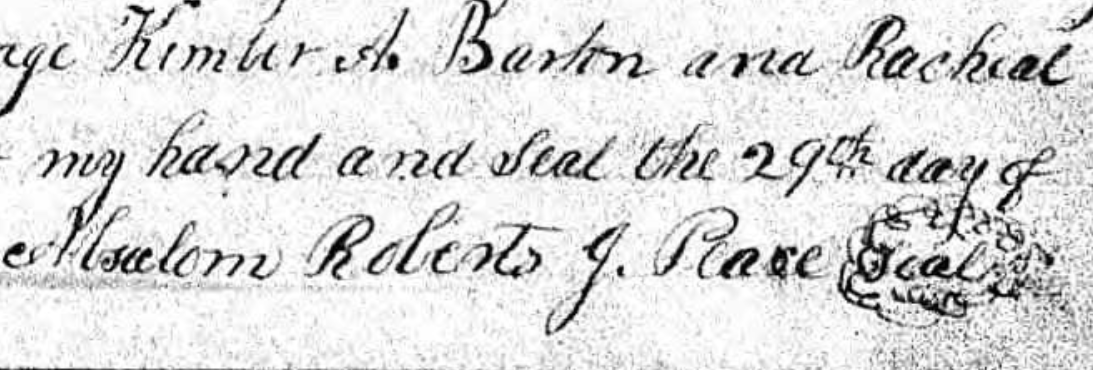 age Kimber A. Barton and Racheal
my hand and Seal the 29th day of
Absalom Roberts J. Peace Seal